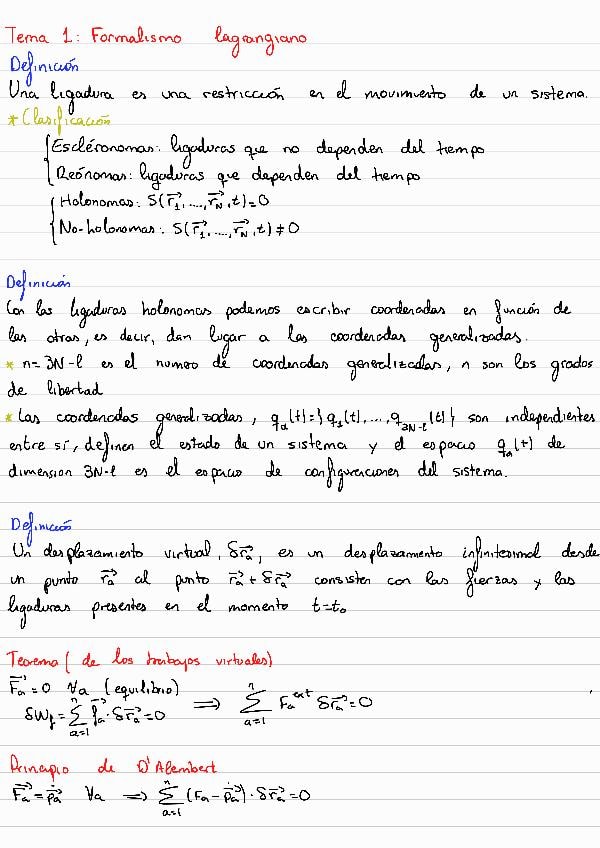 Tema 1: Formalismo lagrangiano
Definición
Una ligadura es una restricción en el movimiento de un sistema.
* Clasificación
{ Escléronomas: ligaduras que no dependen del tiempo
Reónomas: ligaduras que dependen del tiempo
{ Holonomas: S(r⃗₁, ..., r⃗_N, t) = 0
No-holonomas: S(r⃗₁, ..., r⃗_N, t) ≠ 0
Definición
Con las ligaduras holonomas podemos escribir coordenadas en función de
las otras, es decir, dan lugar a las coordenadas generalizadas.
* n = 3N - l es el numero de coordenadas generalizadas, n son los grados
de libertad
* Las coordenadas generalizadas, q_α(t) = {q₁(t), ..., q_{3N-l}(t)} son independientes
entre sí, definen el estado de un sistema y el espacio q_α(t) de
dimension 3N-l es el espacio de configuraciones del sistema.
Definición
Un desplazamiento virtual, δr⃗ₐ, es un desplazamento infinitesimal desde
un punto r⃗ₐ al punto r⃗ₐ + δr⃗ₐ consisten con las fierzas y las
ligaduras presentes en el momento t = t₀
Teorema (de los trabajos virtuales)
F⃗ₐ = 0 ∀a (equilibrio)
δW_f = Σ_{a=1}^{n} f⃗ₐ · δr⃗ₐ = 0 ⟹ Σ_{a=1}^{n} Fₐ^{ext} δr⃗ₐ = 0
Principio de D'Alembert
F⃗ₐ = ṗ⃗ₐ ∀a ⟹ Σ_{a=1}^{n} (Fₐ - ṗ⃗ₐ) · δr⃗ₐ = 0